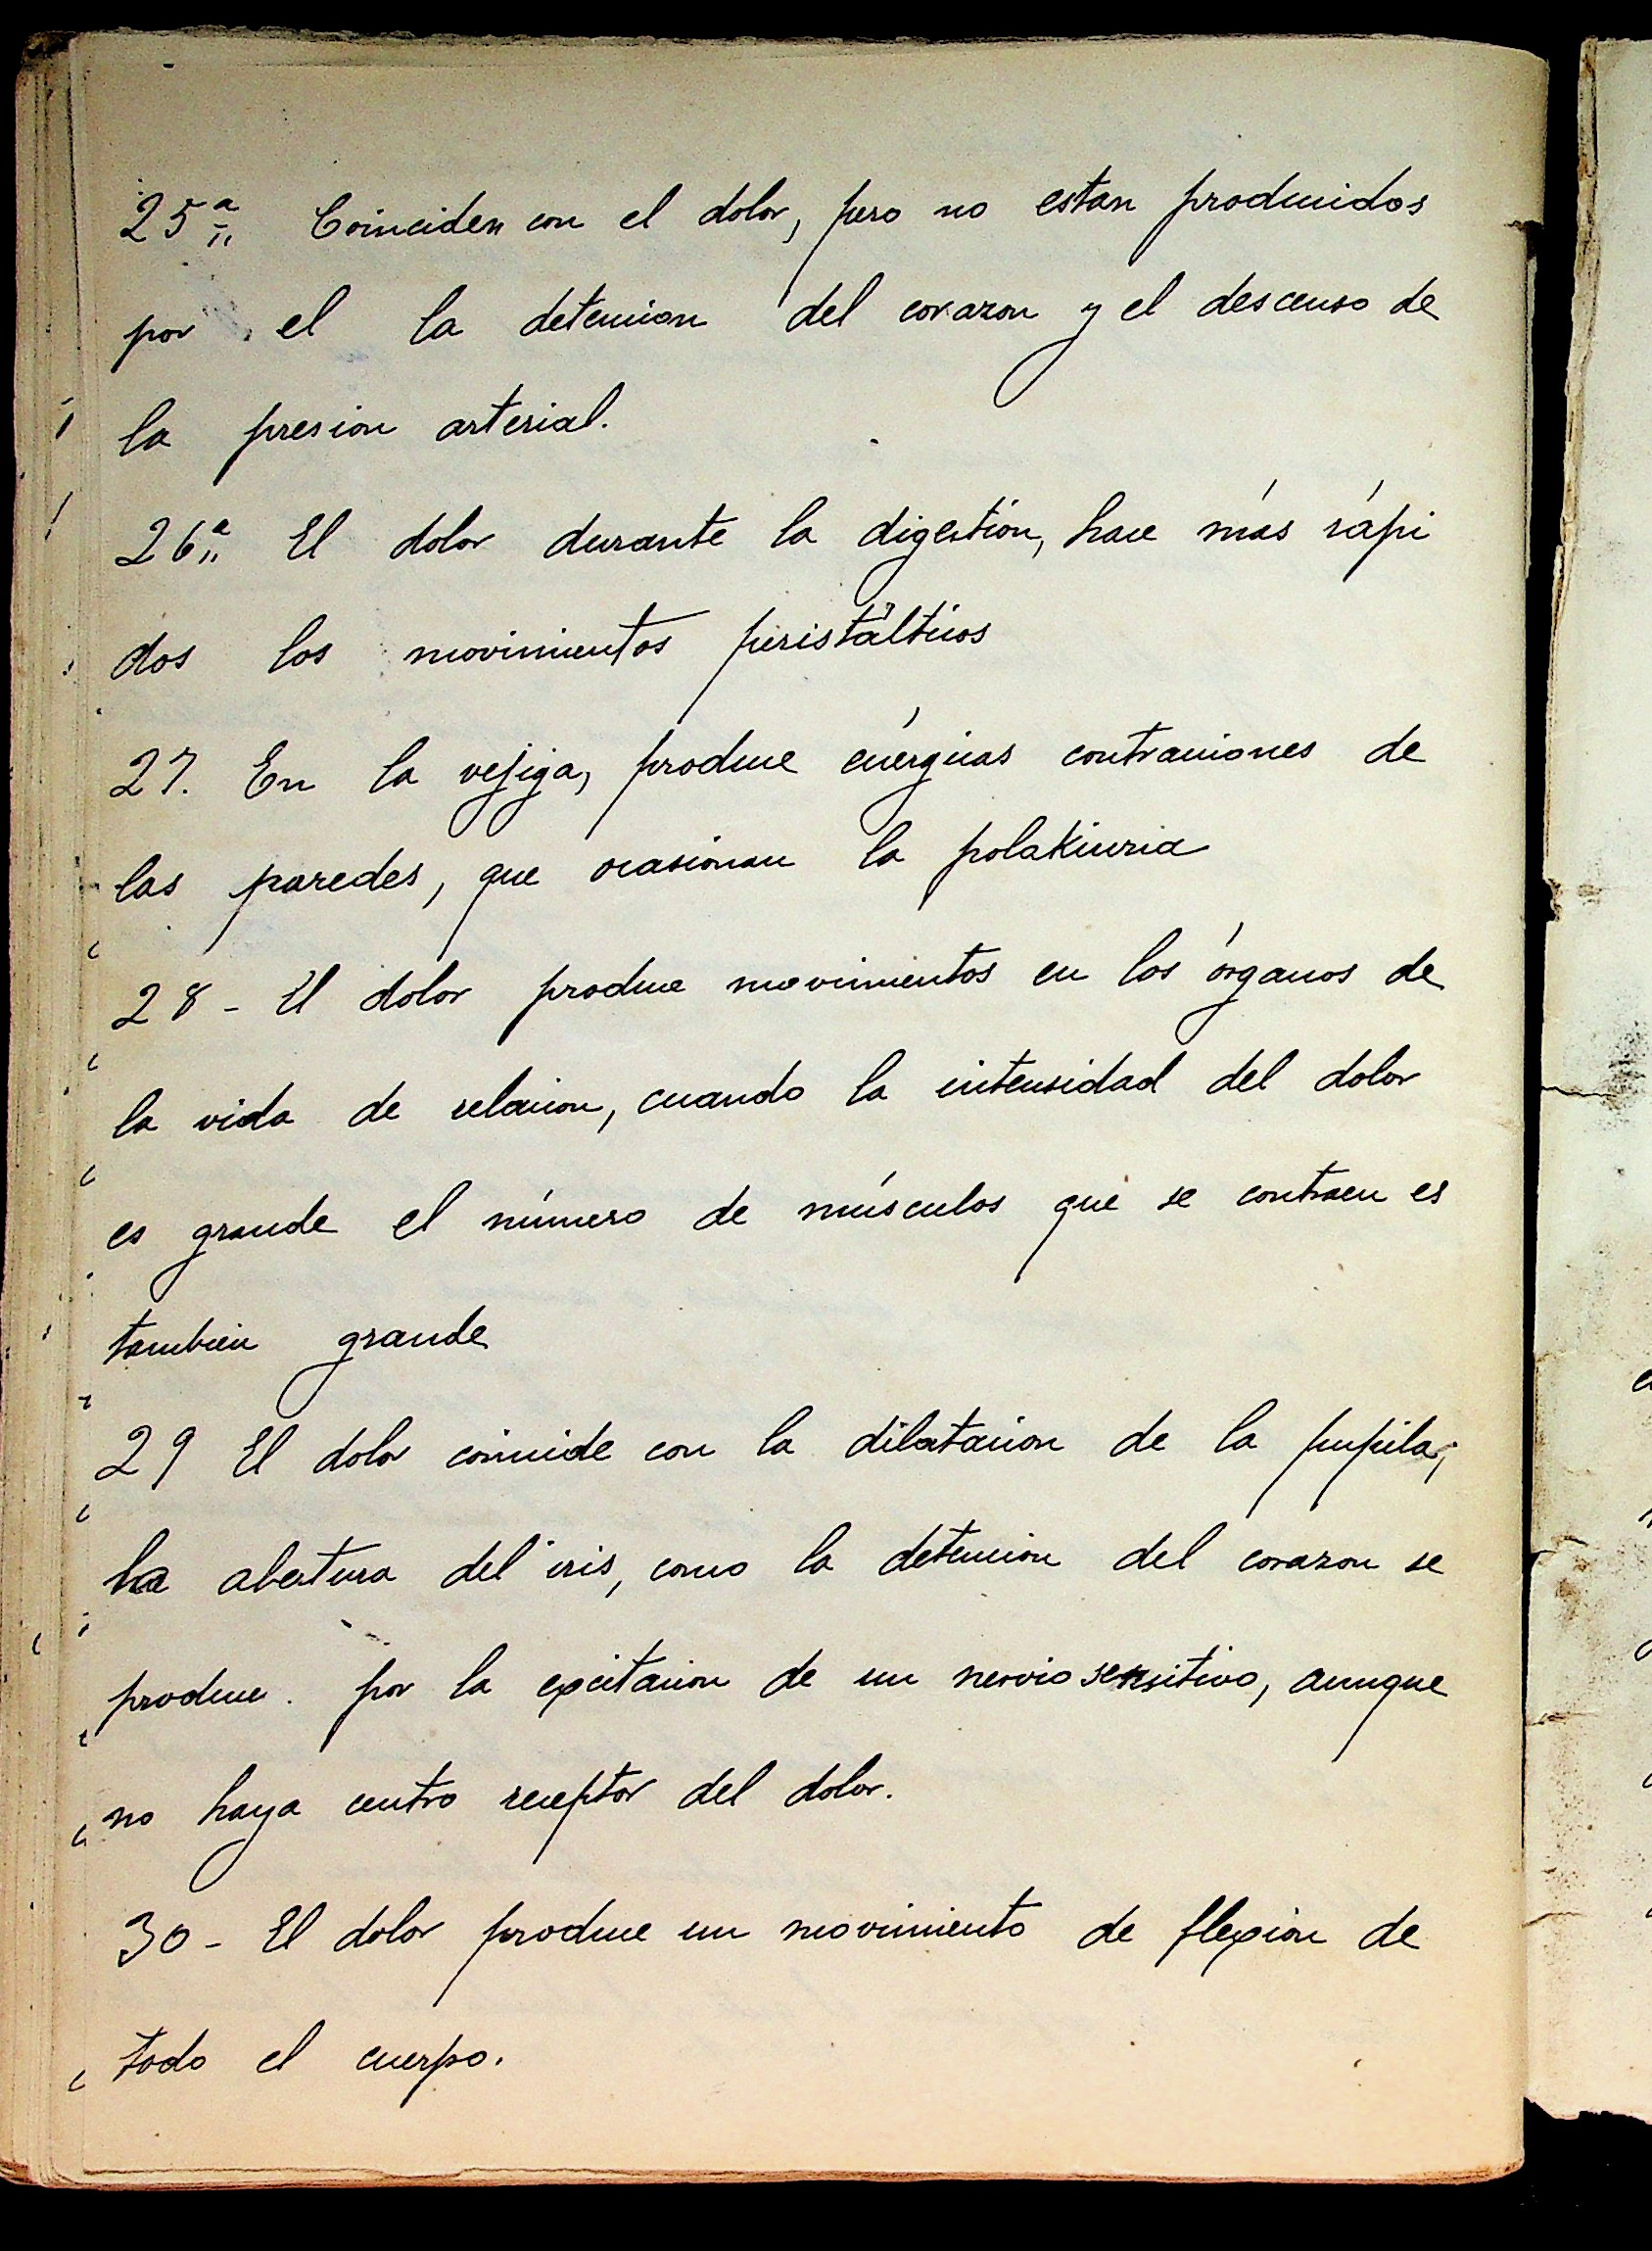 25ª Coinciden con el dolor, pero no estan producidos
por el la detencion del corazon y el descenso de
la presion arterial.
26ª El dolor durante la digestión, hace más rápi
dos los movimientos peristálticos
27. En la vejiga, produce enérgicas contracciones de
las paredes, que ocasionan la polakiuria
28 - El dolor produce movimientos en los órganos de
la vida de relacion, cuando la intensidad del dolor
es grande el número de músculos que se contraen es
tambien grande
29 El dolor coincide con la dilatacion de la pupila;
la abertura del iris, como la detencion del corazon se
produce. por la excitacion de un nervio sensitivo, aunque
no haya centro receptor del dolor.
30 - El dolor produce un movimiento de flexion de
todo el cuerpo.